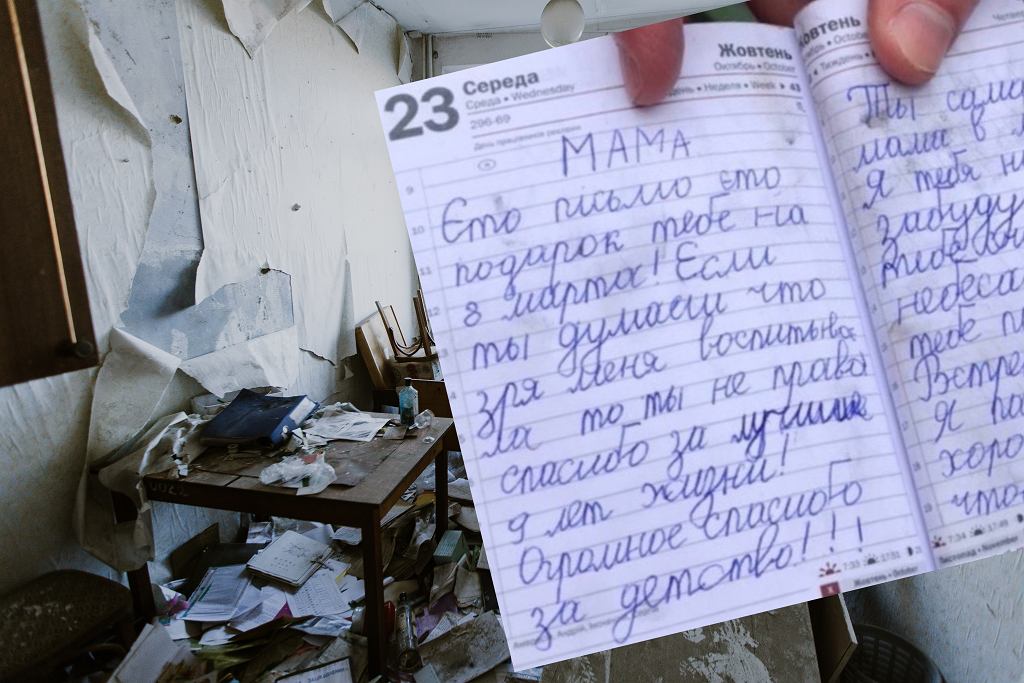 23
Середа
Среда • Wednesday
296-69
День працівників реклами
Жовтень
Октябрь • October
Неделя • Week 43
МАМА
Єто письмо єто
подарок тебе на
8 марта! Если
ты думаеш что
зря меня воспитыва
ла то ты не права
спасибо за лучшие
9 лет жизни!
Огромное спасибо
за детство!!!
7:33 17:51
Жовтень • October
Жовтень
October
Тиждень
Ты сама
мама в
Я тебя не
забуду
тебя
небеса
тебе
Встре
Я
хоро
что
7:34 17:49
Листопад • November
9
10
11
12